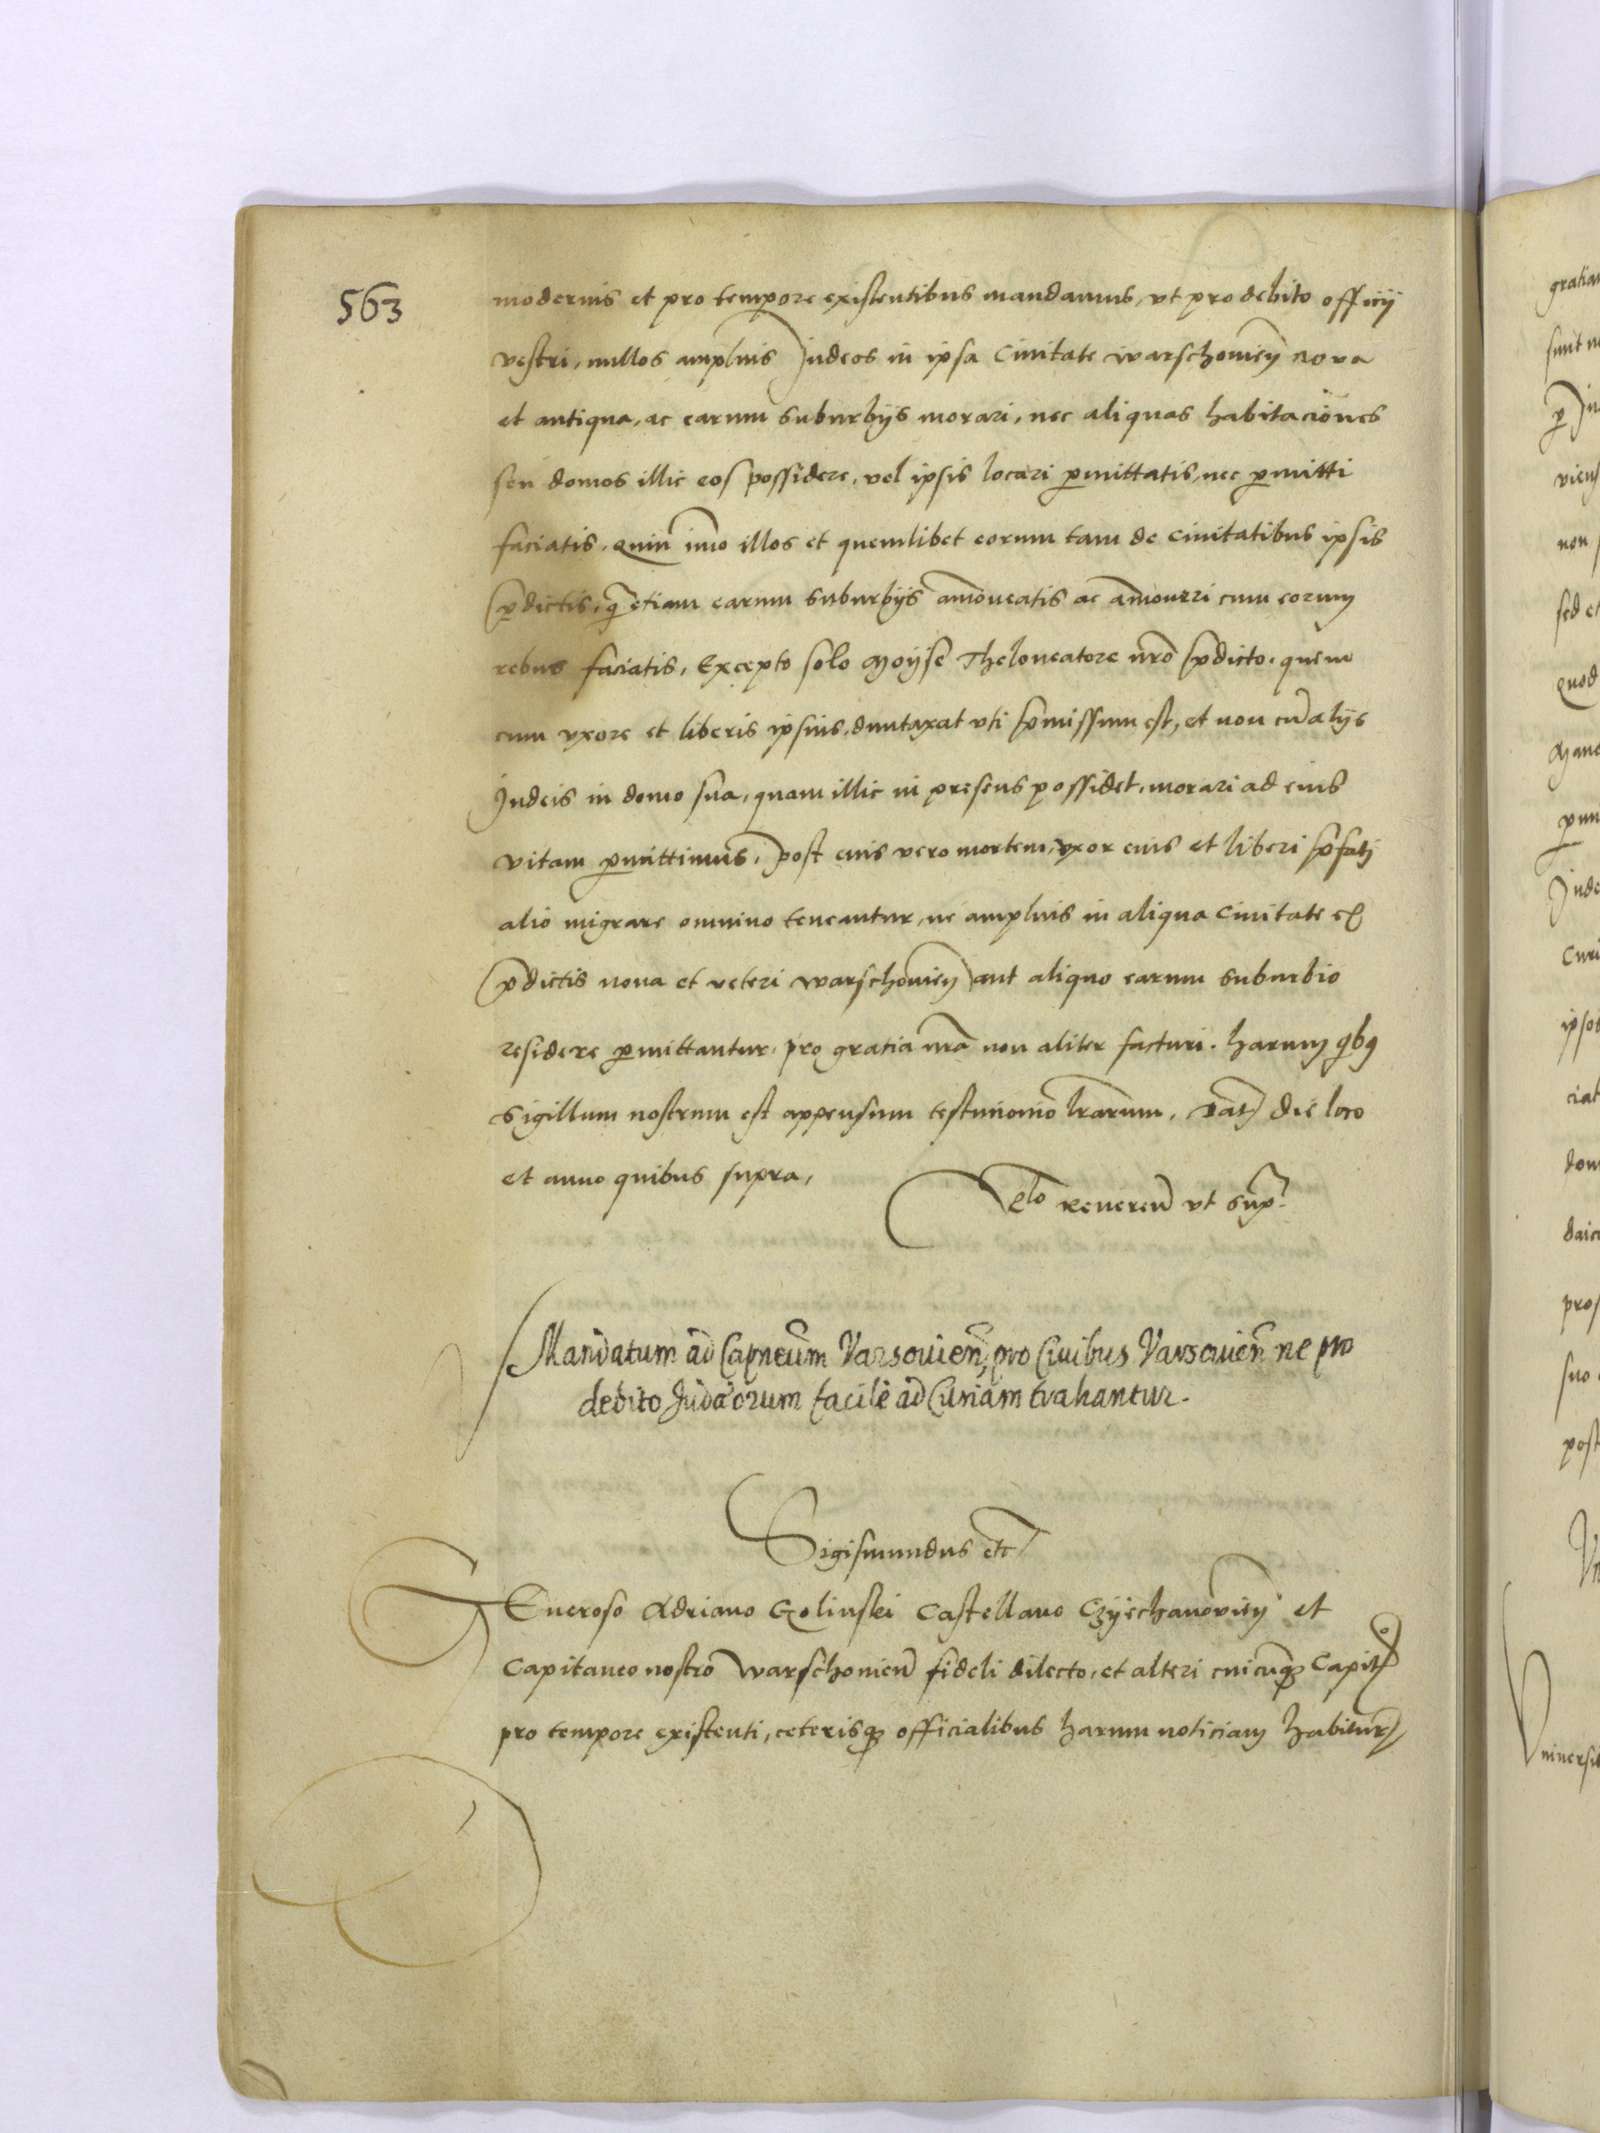 563
modernis et pro tempore existentibus mandamus, vt pro debito officij
vestri, nullos amplius Judeos in ipsa Ciuitate warschouien̄ noua
et antiqua, ac earum suburbijs morari, nec aliquas habitaciones
seu domos illic eos possidere, vel ipsis locari p̱mittatis, nec p̱mitti
faciatis, Quin īmo illos et quemlibet eorum tam de Ciuitatibus ipsis
p̄dictis, q̄ etiam earum suburbijs amoueatis ac amoueri cum eorum
rebus faciatis, Excepto solo Moijse Theloneatore nr̄o p̄dicto, quem
cum vxore et liberis ipsius, duntaxat vti p̄missum est, et non cū alijs
Judeis in domo sua, quam illic in presens possidet, morari ad eius
vitam p̱mittimus, post eius vero mortem, vxor eius et liberi p̄fatj
alio migrare omnino teneantur, ne amplius in aliqua Ciuitate ex
p̄dictis noua et veteri warschouien̄ aut aliquo earum suburbio
residere p̱mittantur, pro gratia nr̄a non aliter facturi. Harum qbꝫ
Sigillum nostrum est appensum testimonio lr̄arum, Dat̄ die loco
et anno quibus supra,
Rel̄o Reueren̄ vt sup̄.
Mandatum ad Capneūm Varsouien̄, pro Ciuibus Varsouien̄ ne pro
debito Judæorum facile ad Curiam trahantur.
Sigismundus etc̄
Generoso Adriano Golinski Castellano Czijechanouien̄ et
Capitaneo nostro Warschouien̄ fideli dilecto, et alteri cuicūqꝫ Capit̄o
pro tempore existenti, ceterisqꝫ officialibus harum noticiam habitur̄